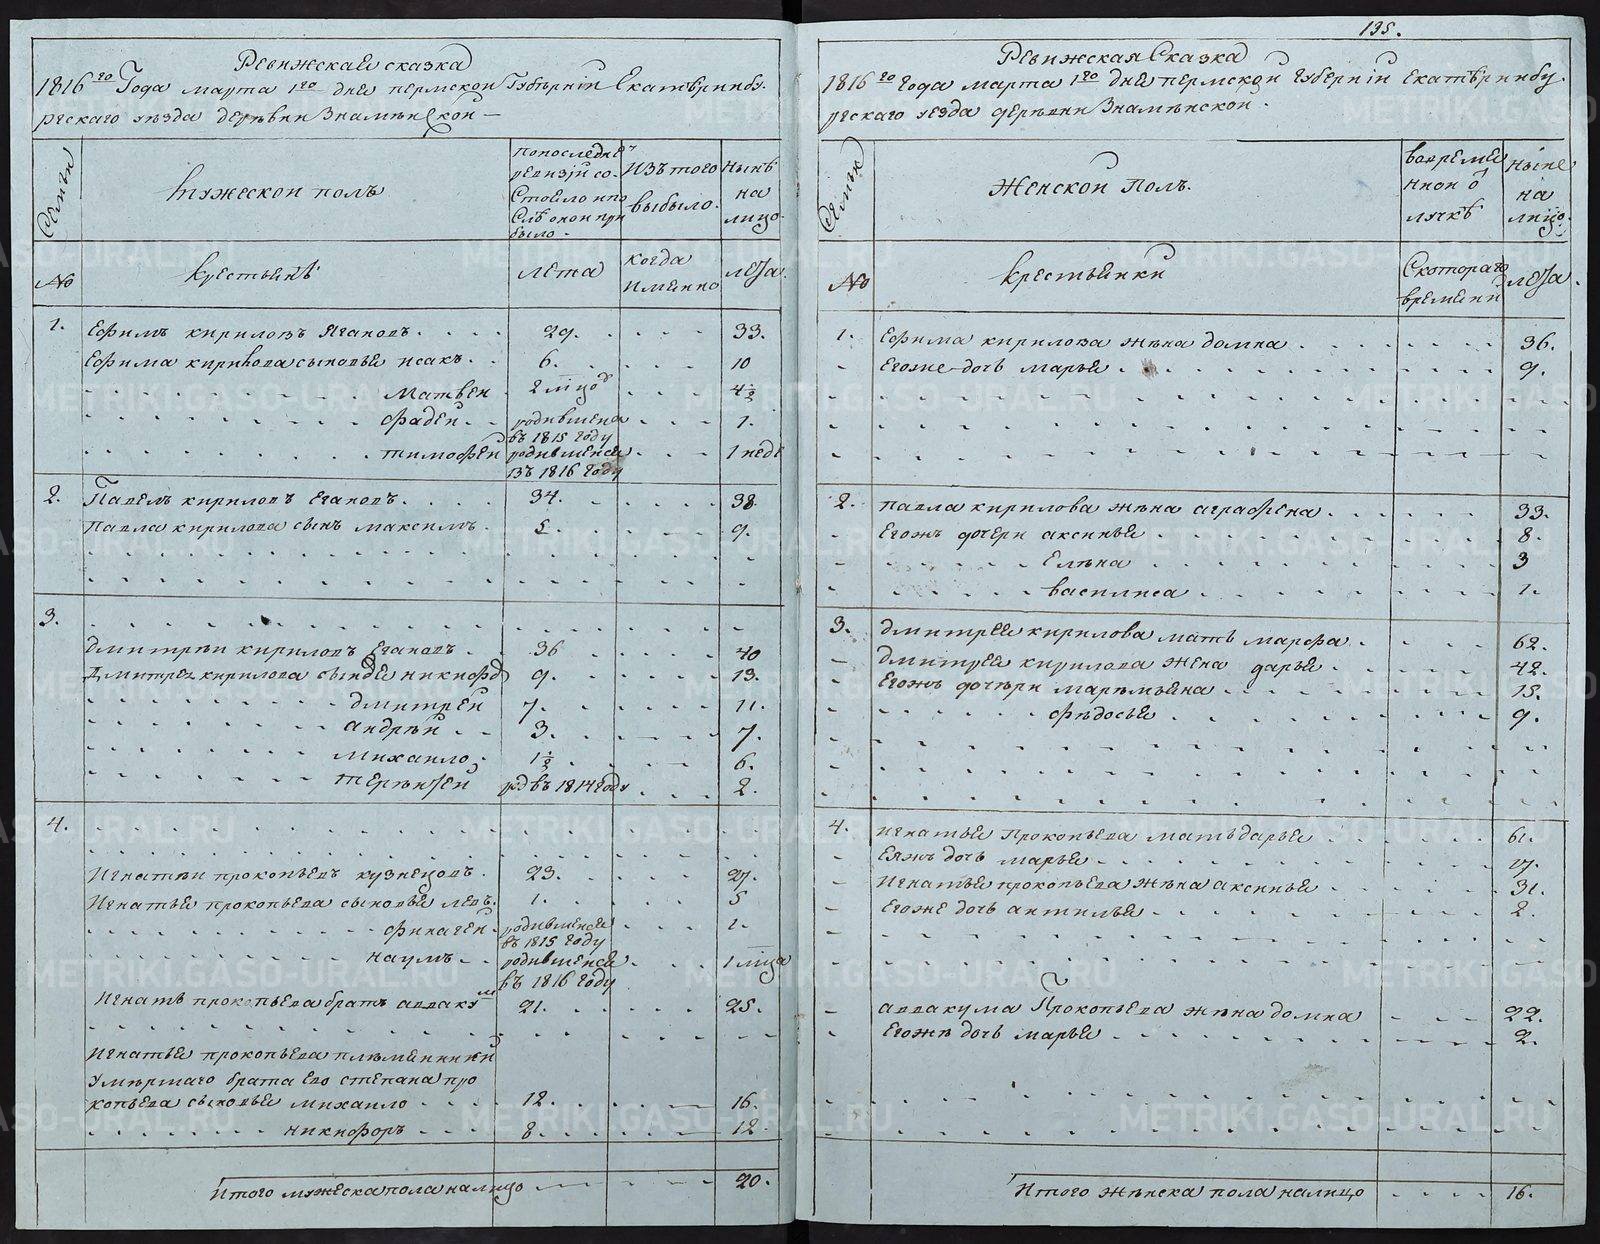 Ревижская сказка
1816го Года марта 1го дня пермской Губѣрнiи Екатѣринбу.
ргскаго уѣзда дерѣвни Знамѣнской
Сѣмьи
Мужескои полъ
Попоследнеи
ревизiи со-
Стояло ипо
Слѣ онои при
было.
Изъ того
выбыло.
Нынѣ
на
лицо.
No
Крестьянѣ
лета
когда
имянно
лета.
1. Ефимъ кириловъ Ягановъ. 29. 33.
Ефима кирилова сыновья исакъ. 6. 10
Матвеи 2 мцов 4 1/2
фадеи родившеися 1.
въ 1815 году
тимофеи родившеися 1 неде
въ 1816 году
2. Павелъ кириловъ Егановъ. 34. 38.
Павла кирилова сынъ максимъ. 5. 9.
3.
Дмитрѣи кириловъ Егановъ. 36 40
Дмитрея кирилова сыновя никифор 9. 13.
дмитреи 7. 11.
андрѣи 3. 7.
михаило 1 1/2 6.
терѣнтеи рд въ 1814 году 2.
4.
Игнатѣи прокопьевъ кузнецовъ. 23. 27.
Игнатья прокопьева сыновья левъ. 1. 5
финагеи родившеися 1.
въ 1815 году
наумъ родившеися 1 мца
въ 1816 году
Игнатя прокопьева братъ аввакум 21. 25.
Игнатья прокопьева плѣмянники
умѣршаго брата ево степана про
копьева сыновья михаило 12. 16.
никифоръ 8. 12
Итого мужеска пола налицо 20.
135.
Ревижская Сказка
1816го года марта 1го дня пермской губернiи екатѣринбу.
ргскаго уезда дерѣвни Знамѣнской.
Сѣмьи
Женской полъ.
вовремен
нной о
лучкѣ
Ныне
на
лицо.
No
крестьянки
Скотораго
времени
лета.
1. Ефима кирилова жѣна домна 36.
Егоже дочь марья 9.
2. павла кирилова жѣна аграфена 33.
Егожъ дочери аксинья 8.
Елѣна 3
василиса 1.
3. дмитрея кирилова мать марфа 62.
дмитрея кирилова жена дарья 42.
Егожъ дочѣри марѣмьяна 15.
фѣдосья 9.
4. игнатья Прокопьева мать дарья 61.
Еяжъ дочь марья 17.
Игнатья прокопьева жѣна аксинья 31.
Егоже дочь антилья 2.
аввакума Прокопьева жѣна домна 22.
Егожъ дочь марья 2.
Итого жѣнска пола налицо 16.
METRIKI.GASO-URAL.RU